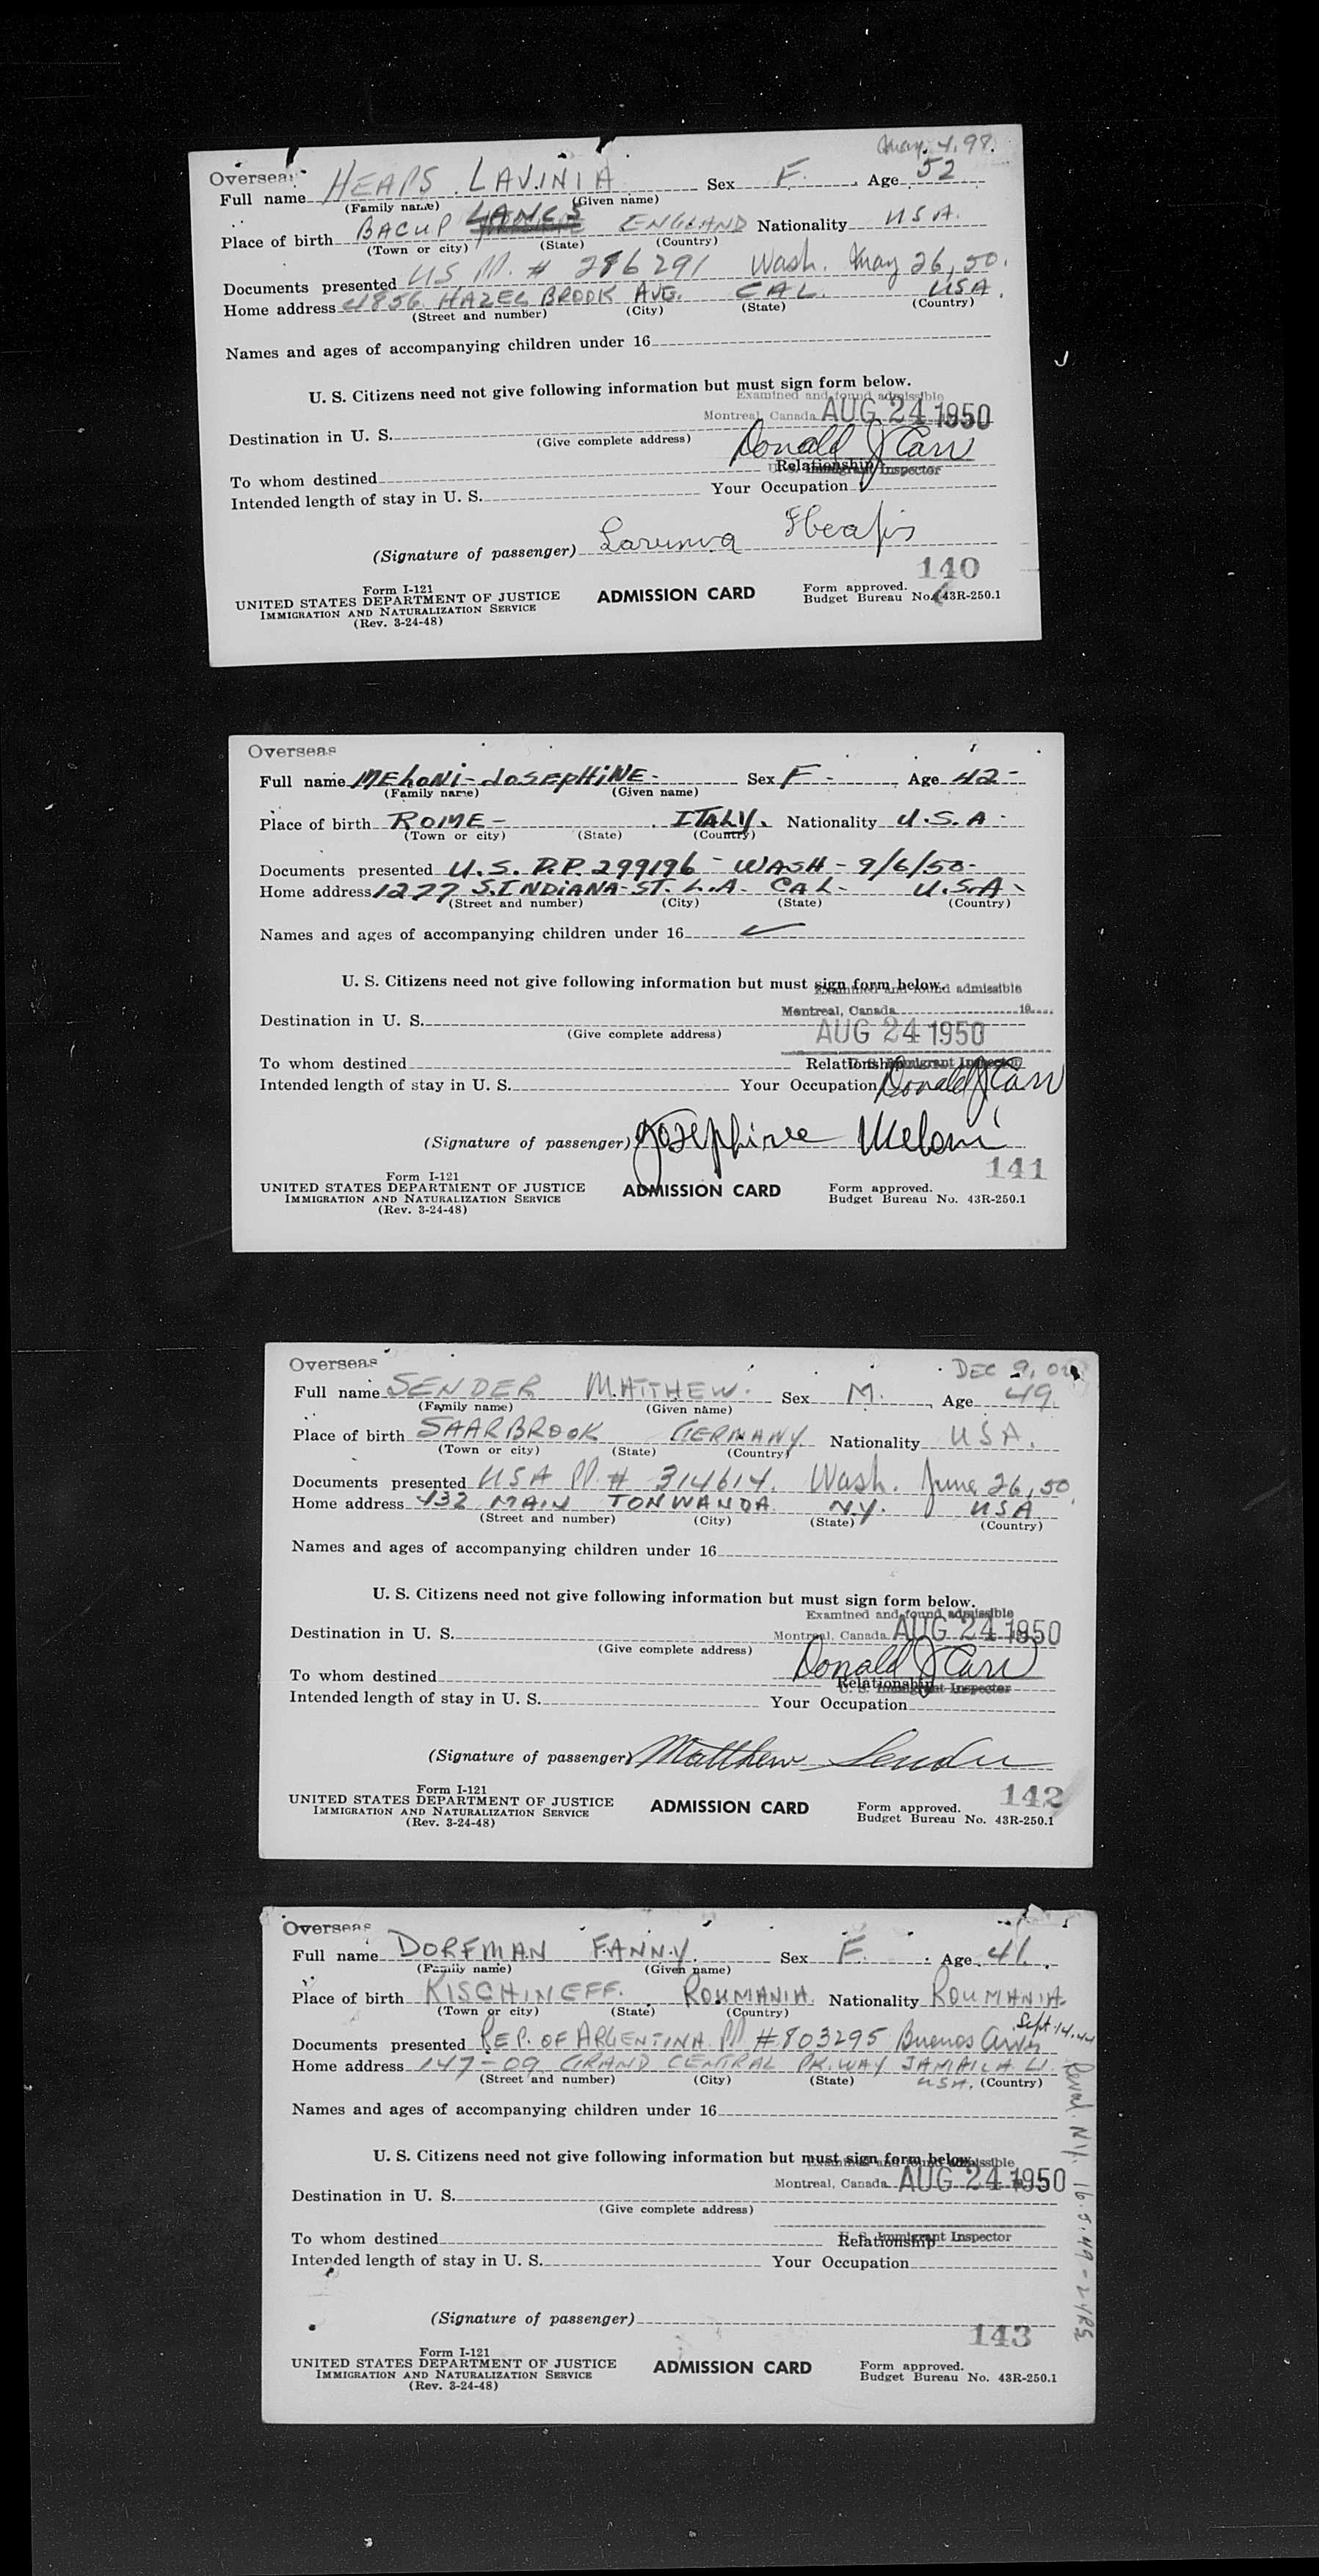 May. 4. 98.
Overseas
Full name HEAPS LAVINIA Sex F. Age 52
(Family name) (Given name)
Place of birth BACUP LANCS ENGLAND Nationality USA.
(Town or city) (State) (Country)
Documents presented US PP. # 286291 Wash. May 26, 50.
Home address 4856 HAZEL BROOK AVE. CAL. USA.
(Street and number) (City) (State) (Country)
Names and ages of accompanying children under 16
U. S. Citizens need not give following information but must sign form below.
Examined and found admissible
Montreal, Canada AUG 24 1950
Destination in U. S.
(Give complete address)
Donald J Carr
To whom destined Relationship
U. S. Immigrant Inspector
Intended length of stay in U. S. Your Occupation
(Signature of passenger) Lavinia Heaps
140
Form I-121
UNITED STATES DEPARTMENT OF JUSTICE
IMMIGRATION AND NATURALIZATION SERVICE
(Rev. 3-24-48)
ADMISSION CARD
Form approved.
Budget Bureau No. 43R-250.1
Overseas
Full name MELONI - JOSEPHINE - Sex F - Age 42 -
(Family name) (Given name)
Place of birth ROME - ITALY. Nationality U.S.A.
(Town or city) (State) (Country)
Documents presented U.S. P.P. 299196 - WASH - 9/6/50 -
Home address 1277 S. INDIANA - ST. L.A. CAL - U.S.A -
(Street and number) (City) (State) (Country)
Names and ages of accompanying children under 16
U. S. Citizens need not give following information but must sign form below.
Examined and found admissible
Montreal, Canada 19
Destination in U. S. AUG 24 1950
(Give complete address)
To whom destined Relationship
U. S. Immigrant Inspector
Intended length of stay in U. S. Your Occupation Donald J Carr
(Signature of passenger) Josephine Meloni
141
Form I-121
UNITED STATES DEPARTMENT OF JUSTICE
IMMIGRATION AND NATURALIZATION SERVICE
(Rev. 3-24-48)
ADMISSION CARD
Form approved.
Budget Bureau No. 43R-250.1
Overseas
DEC 9,
Full name SENDER MATTHEW. Sex M. Age 49.
(Family name) (Given name)
Place of birth SAARBROOK GERMANY Nationality USA.
(Town or city) (State) (Country)
Documents presented USA PP. # 314614. Wash. June 26, 50.
Home address 432 MAIN TONWANDA N.Y. USA
(Street and number) (City) (State) (Country)
Names and ages of accompanying children under 16
U. S. Citizens need not give following information but must sign form below.
Examined and found admissible
Montreal, Canada AUG 24 1950
Destination in U. S.
(Give complete address)
Donald J Carr
To whom destined Relationship
U. S. Immigrant Inspector
Intended length of stay in U. S. Your Occupation
(Signature of passenger) Matthew Sender
142
Form I-121
UNITED STATES DEPARTMENT OF JUSTICE
IMMIGRATION AND NATURALIZATION SERVICE
(Rev. 3-24-48)
ADMISSION CARD
Form approved.
Budget Bureau No. 43R-250.1
Overseas
Full name DORFMAN FANNY. Sex F. Age 41.
(Family name) (Given name)
Place of birth KISCHINEFF. ROUMANIA. Nationality ROUMANIA
(Town or city) (State) (Country)
Sept. 14. 44
Documents presented REP. OF ARGENTINA PP # 803295 Buenos Aires
Home address 147-09 GRAND CENTRAL PK. WAY JAMAICA LI.
(Street and number) (City) (State) USA. (Country)
Reval. N.Y. 16.5.49 - 2 YRS
Names and ages of accompanying children under 16
U. S. Citizens need not give following information but must sign form below.
Examined and found admissible
Montreal, Canada AUG 24 1950
Destination in U. S.
(Give complete address)
To whom destined Relationship
U. S. Immigrant Inspector
Intended length of stay in U. S. Your Occupation
(Signature of passenger)
143
Form I-121
UNITED STATES DEPARTMENT OF JUSTICE
IMMIGRATION AND NATURALIZATION SERVICE
(Rev. 3-24-48)
ADMISSION CARD
Form approved.
Budget Bureau No. 43R-250.1